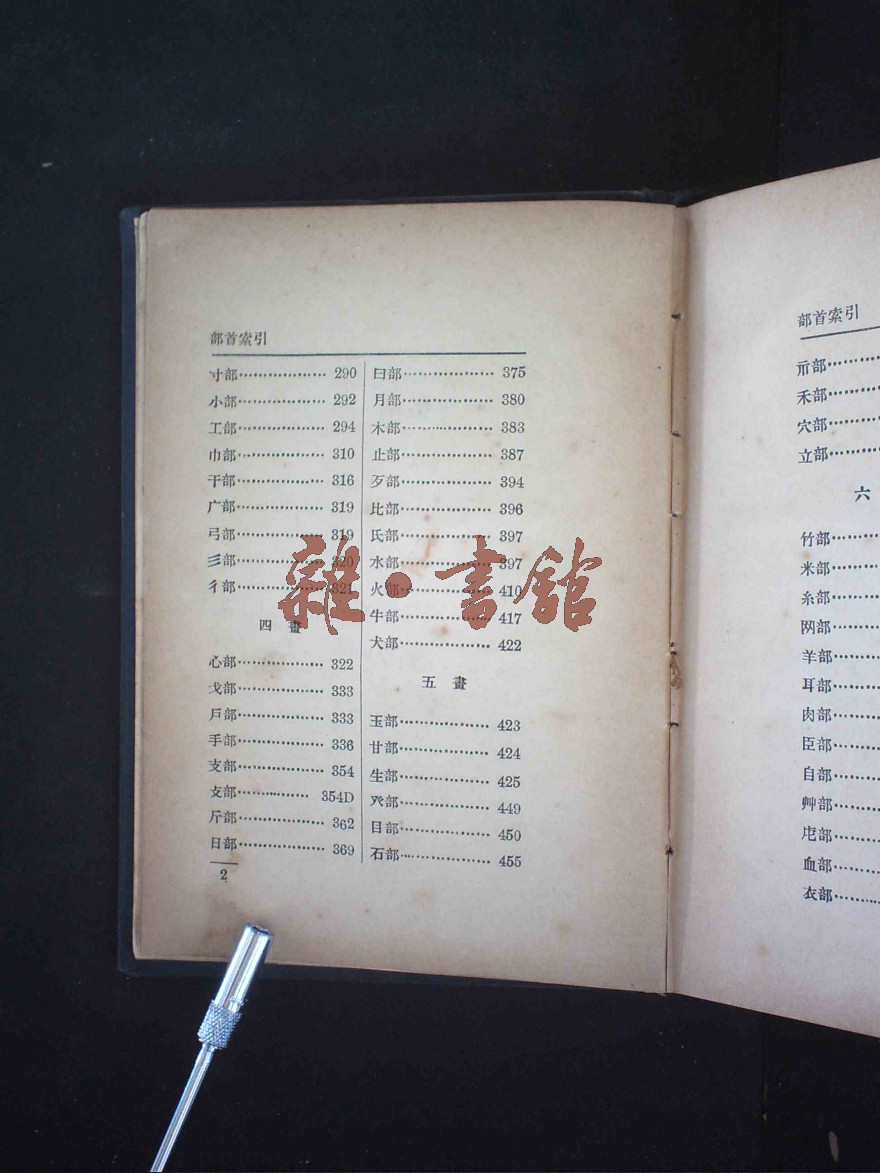 部首索引
寸部⋯⋯⋯⋯⋯⋯ 290
小部⋯⋯⋯⋯⋯⋯ 292
工部⋯⋯⋯⋯⋯⋯ 294
巾部⋯⋯⋯⋯⋯⋯ 310
干部⋯⋯⋯⋯⋯⋯ 316
广部⋯⋯⋯⋯⋯⋯ 319
弓部⋯⋯⋯⋯⋯⋯ 319
彡部⋯⋯⋯⋯⋯⋯ 320
彳部⋯⋯⋯⋯⋯⋯ 321
四畫
心部⋯⋯⋯⋯⋯⋯ 322
戈部⋯⋯⋯⋯⋯⋯ 333
戶部⋯⋯⋯⋯⋯⋯ 333
手部⋯⋯⋯⋯⋯⋯ 336
支部⋯⋯⋯⋯⋯⋯ 354
攴部⋯⋯⋯⋯⋯ 354D
斤部⋯⋯⋯⋯⋯⋯ 362
日部⋯⋯⋯⋯⋯⋯ 369
2
曰部⋯⋯⋯⋯⋯⋯ 375
月部⋯⋯⋯⋯⋯⋯ 380
木部⋯⋯⋯⋯⋯⋯ 383
止部⋯⋯⋯⋯⋯⋯ 387
歹部⋯⋯⋯⋯⋯⋯ 394
比部⋯⋯⋯⋯⋯⋯ 396
氏部⋯⋯⋯⋯⋯⋯ 397
水部⋯⋯⋯⋯⋯⋯ 397
火部⋯⋯⋯⋯⋯⋯ 410
牛部⋯⋯⋯⋯⋯⋯ 417
犬部⋯⋯⋯⋯⋯⋯ 422
五畫
玉部⋯⋯⋯⋯⋯⋯ 423
甘部⋯⋯⋯⋯⋯⋯ 424
生部⋯⋯⋯⋯⋯⋯ 425
癶部⋯⋯⋯⋯⋯⋯ 449
目部⋯⋯⋯⋯⋯⋯ 450
石部⋯⋯⋯⋯⋯⋯ 455
雜·書館
部首索引
示部⋯⋯⋯
禾部⋯⋯⋯
穴部⋯⋯⋯
立部⋯⋯⋯
六
竹部⋯⋯⋯
米部⋯⋯⋯
糸部⋯⋯⋯
网部⋯⋯⋯
羊部⋯⋯⋯
耳部⋯⋯⋯
肉部⋯⋯⋯
臣部⋯⋯⋯
自部⋯⋯⋯
艸部⋯⋯⋯
虍部⋯⋯⋯
血部⋯⋯⋯
衣部⋯⋯⋯